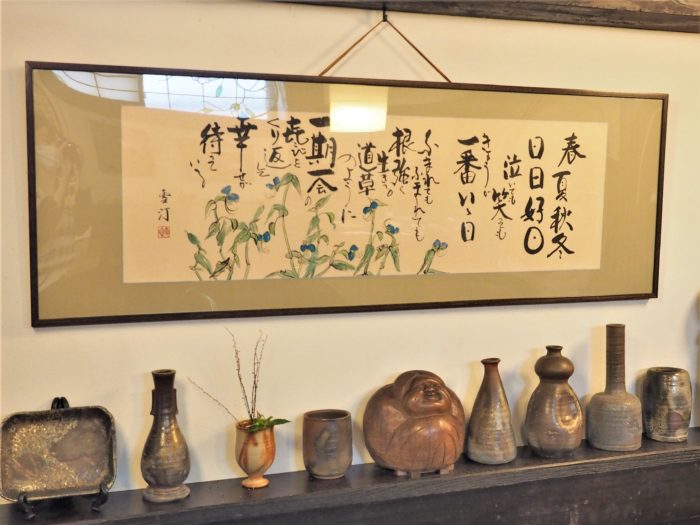 春夏秋冬
日日好日
泣いても
笑っても
きょうが
一番いゝ日
ふまれても
ふまれても
根強く
生きる
道草
のように
一期一会の
喜びを
くり返し
幸せが
待っている
雪汀